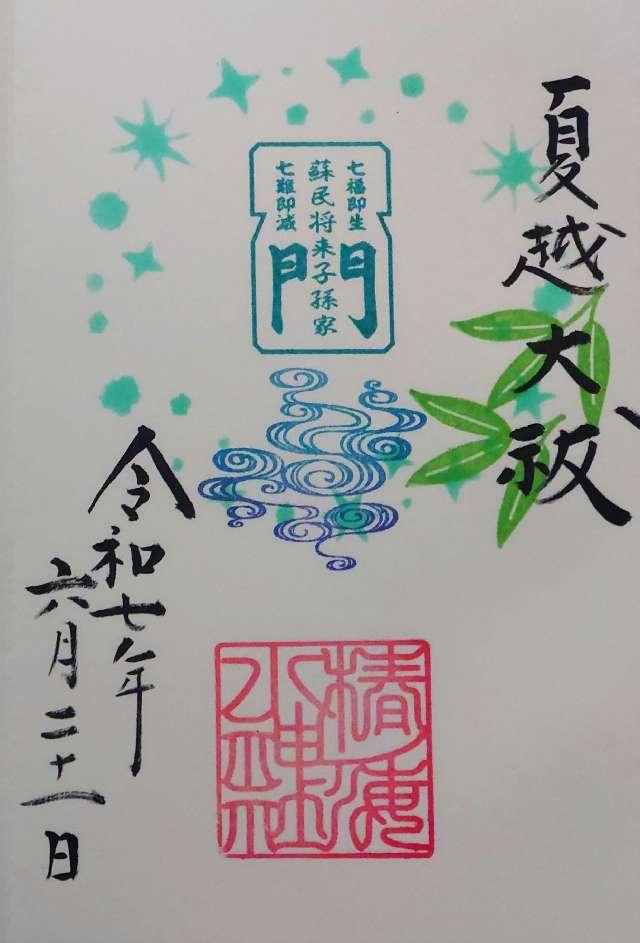 夏越大祓
七福即生
蘇民将来子孫家
七難即滅
門
令和七年
六月二十一日
椿海
水神社